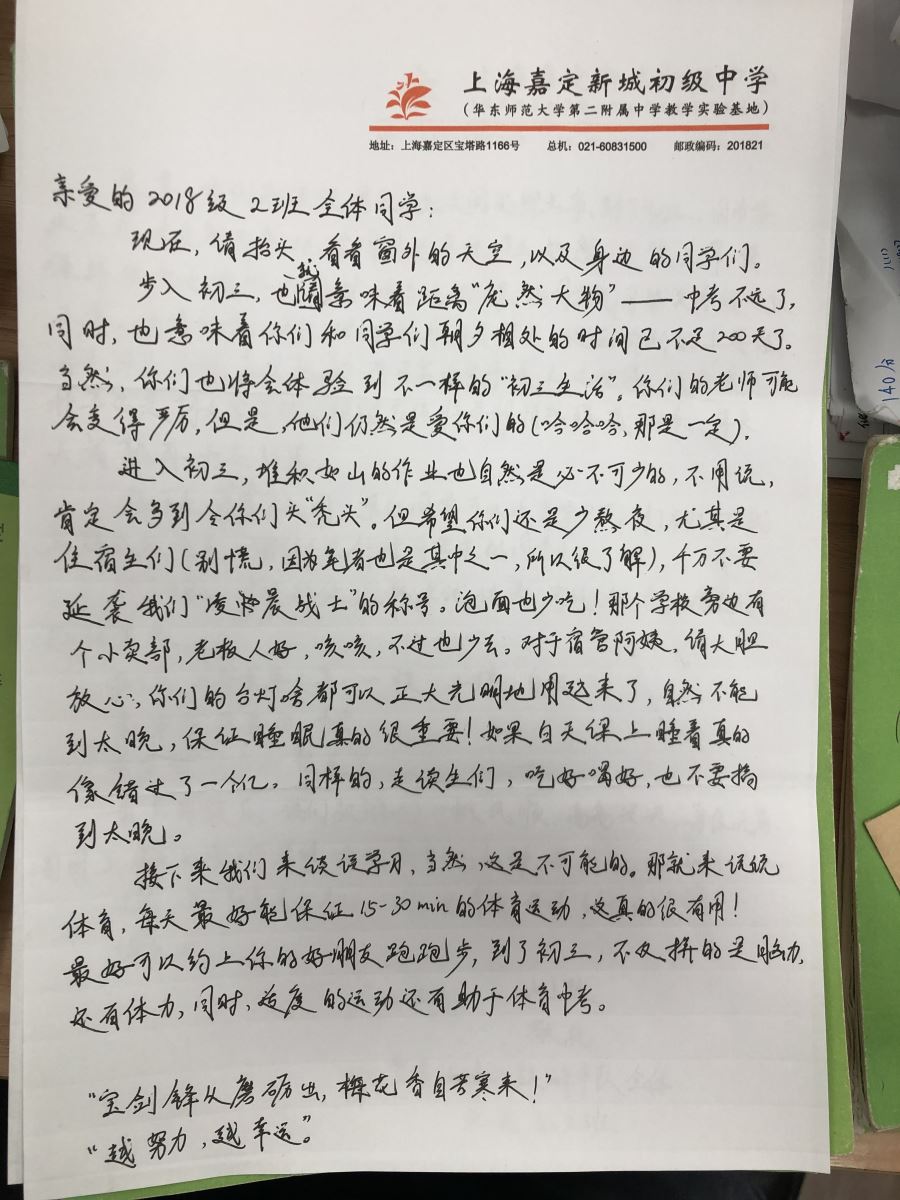 上海嘉定新城初级中学
(华东师范大学第二附属中学教学实验基地)
地址：上海嘉定区宝塔路1166号 总机：021-60831500 邮政编码：201821
亲爱的2018级2班全体同学：
现在，请抬头，看看窗外的天空，以及身边的同学们。
步入初三，也就意味着距离“庞然大物”——中考不远了，
同时，也意味着你们和同学们朝夕相处的时间已不足200天了。
当然，你们也将会体验到不一样的“初三生活”。你们的老师可能
会变得严厉，但是，他们仍然是爱你们的(哈哈哈，那是一定)。
进入初三，堆积如山的作业也自然是必不可少的，不用说，
肯定会多到令你们头“秃头”。但希望你们还是少熬夜，尤其是
住宿生们(别慌，因为笔者也是其中之一，所以很了解)，千万不要
延袭我们“凌晨战士”的称号。泡面也少吃！那个学校旁边有
个小卖部，老板人好，咳咳，不过也少去。对于宿管阿姨，请大胆
放心，你们的台灯啥都可以正大光明地用起来了，自然不能
到太晚，保证睡眠真的很重要！如果白天课上睡着真的
像错过了一个亿。同样的，走读生们，吃好喝好，也不要搞
到太晚。
接下来我们来谈谈学习，当然，这是不可能的。那就来说说
体育，每天最好能保证15-30min的体育运动，这真的很有用！
最好可以约上你的好朋友跑跑步，到了初三，不仅拼的是脑力，
还有体力，同时，适度的运动还有助于体育中考。
“宝剑锋从磨砺出，梅花香自苦寒来！”
“越努力，越幸运”。
140分